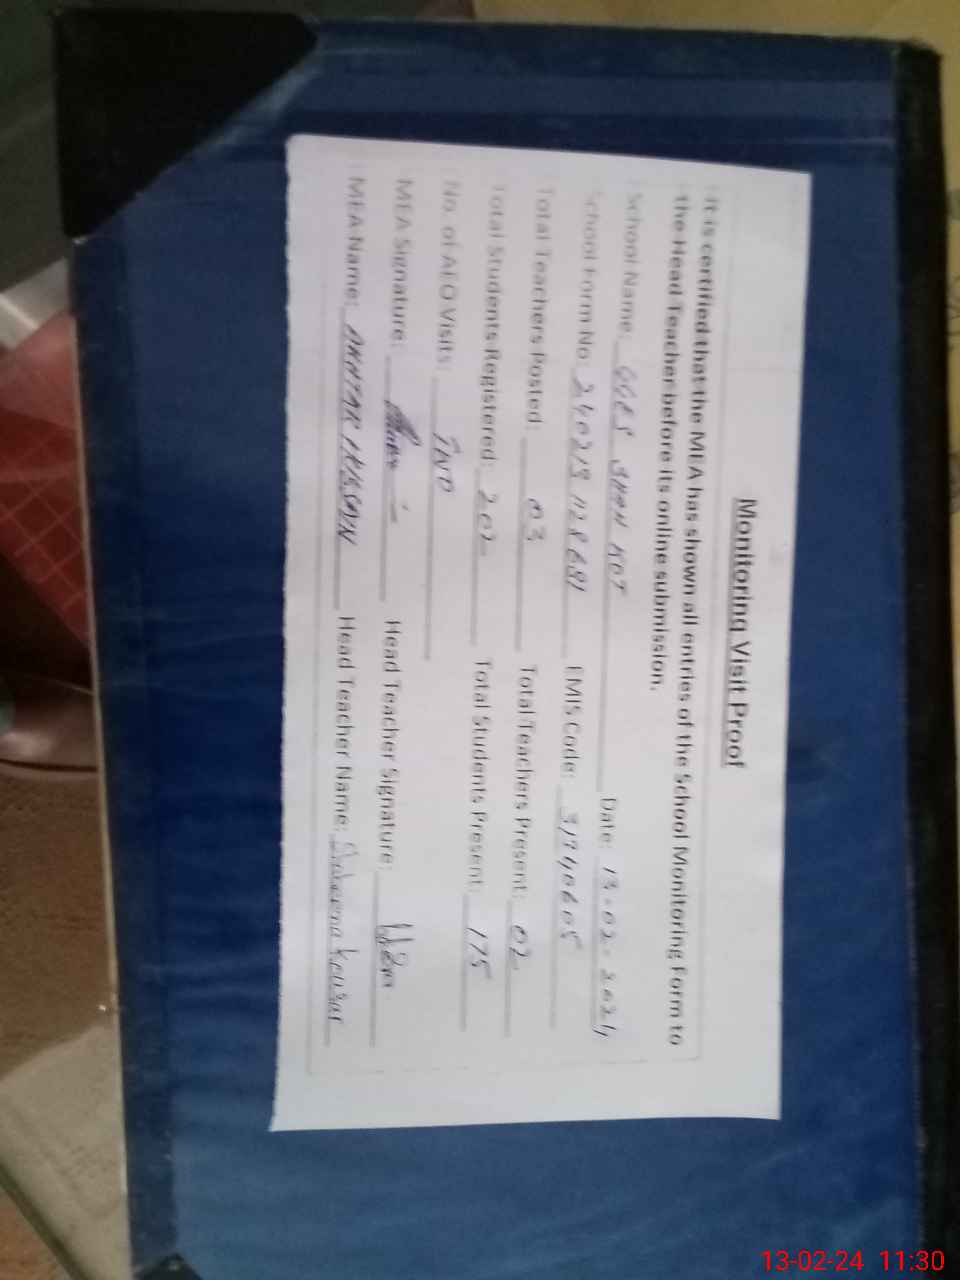 Monitoring Visit Proof
It is certified that the MEA has shown all entries of the School Monitoring Form to
the Head Teacher before its online submission.
School Name: GGES SHAH KOT Date: 13-02-2024
School Form No. 240213 1128681 EMIS Code: 31740605
Total Teachers Posted: 03 Total Teachers Present: 02
Total Students Registered: 202 Total Students Present: 175
No. of AEO Visits: TWO
MEA Signature: Head Teacher Signature:
MEA Name: AKHTAR HUSSAIN Head Teacher Name: Saleema Kousar
13-02-24 11:30